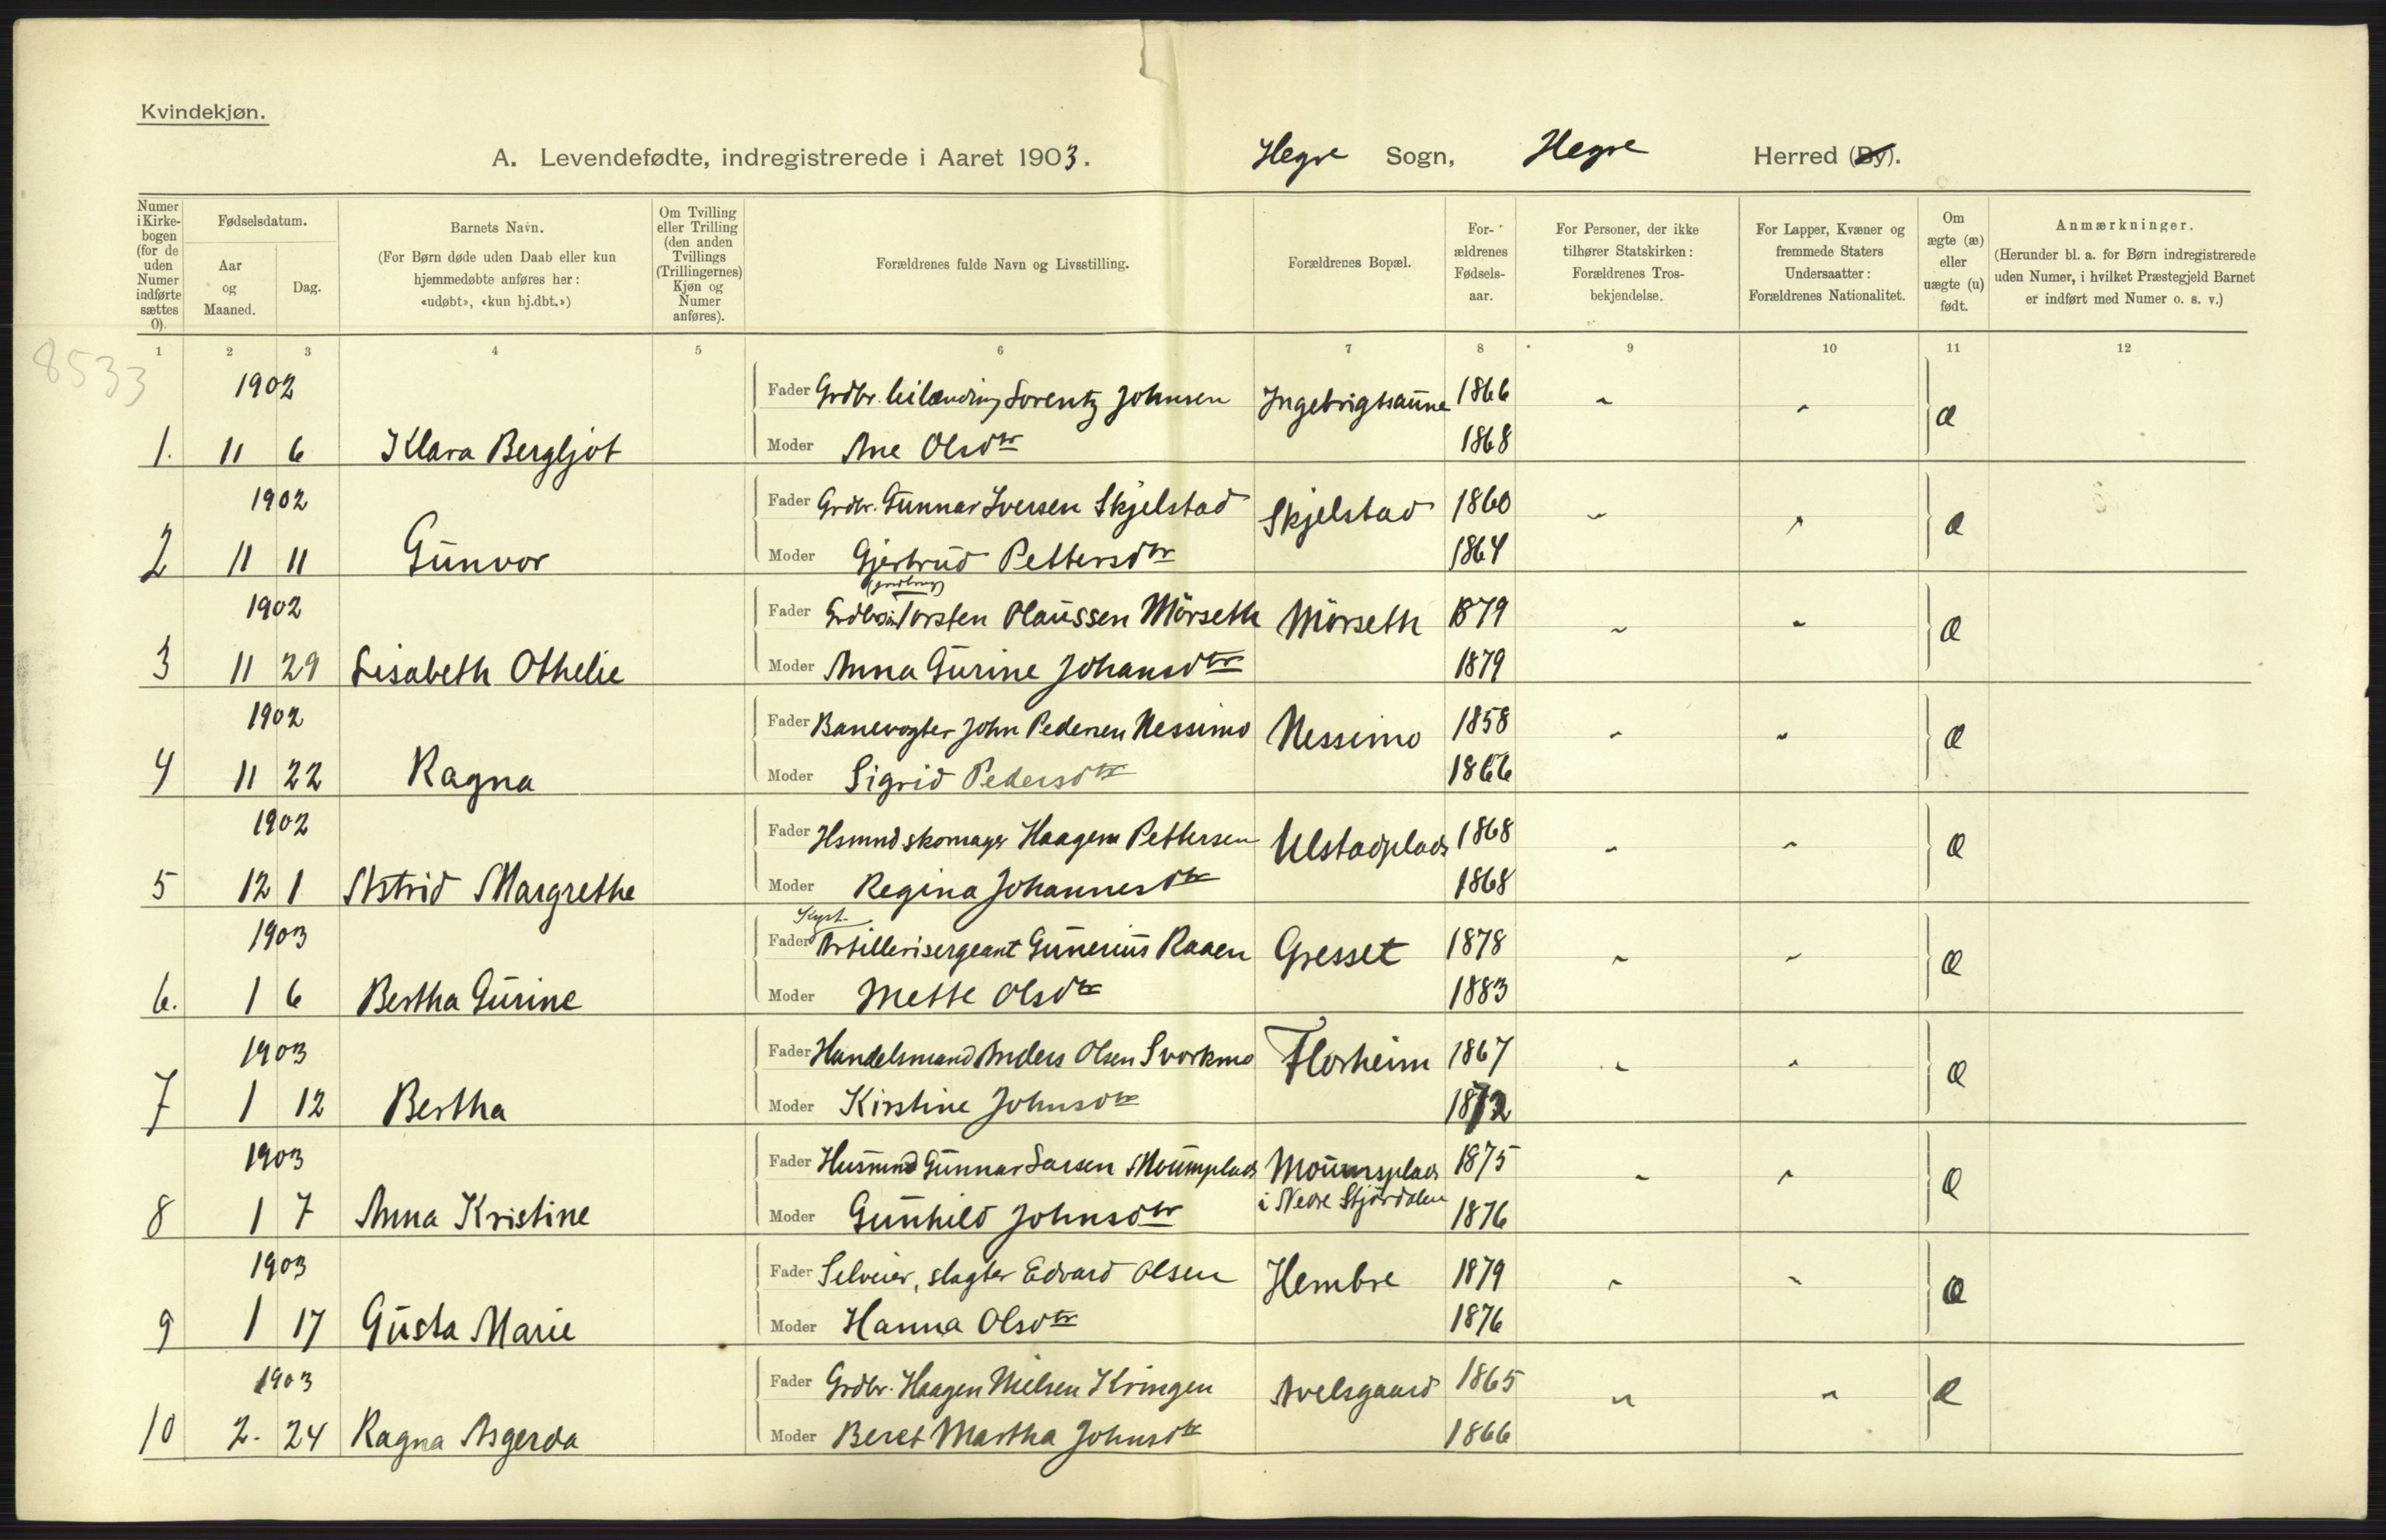 Kvindekjøn.
A. Levendefødte, indregistrerede i Aaret 1903. Hegre Sogn, Hegre Herred (By).
Numer i Kirkebogen (for de uden Numer indførte sættes 0).
Fødselsdatum.
Aar og Maaned.
Dag.
Barnets Navn.
(For Børn døde uden Daab eller kun hjemmedøbte anføres her: «udøbt», «kun hj.dbt.»)
Om Tvilling eller Trilling (den anden Tvillings (Trillingernes) Kjøn og Numer anføres).
Forældrenes fulde Navn og Livsstilling.
Forældrenes Bopæl.
For-ældrenes Fødsels-aar.
For Personer, der ikke tilhører Statskirken: Forældrenes Tros-bekjendelse.
For Lapper, Kvæner og fremmede Staters Undersaatter: Forældrenes Nationalitet.
Om ægte (æ) eller uægte (u) født.
Anmærkninger.
(Herunder bl. a. for Børn indregistrerede uden Numer, i hvilket Præstegjeld Barnet er indført med Numer o. s. v.)
1 2 3 4 5 6 7 8 9 10 11 12
8533
1902 Fader Grdbr. leilænding Lorentz Johnsen Ingebrigtsaune 1866 æ
1. 11 6 Klara Bergljot Moder Ane Olsdtr 1868
1902 Fader Grdbr. Gunnar Iversen Skjelstad Skjelstad 1860 æ
2 11 11 Gunvor Moder Gjertrud Pettersdtr 1864
1902 Fader Torsten Olaussen Mörseth Mörseth 1879 æ
3 11 29 Lisabeth Othelie Moder Anna Gurine Johansdtr 1879
1902 Fader Banevogter John Pedersen Nessimo Nessimo 1858 æ
4 11 22 Ragna Moder Sigrid Pedersdtr 1866
1902 Fader Hsmnd skomager Haagen Pettersen Ulstadplads 1868 æ
5 12 1 Astrid Margrethe Moder Regina Johannesdtr 1868
Kyst-
1903 Fader Artillerisergeant Gunerius Raaen Gresset 1878 æ
6. 1 6 Bertha Gurine Moder Mette Olsdtr 1883
1903 Fader Handelsmand Anders Olsen Svorkmo Florheim 1867 æ
7 1 12 Bertha Moder Kirstine Johnsdtr 1872
1903 Fader Husmnd Gunnar Larsen Moumsplads Moumsplads 1875 æ
i Nedre Stjördalen
8 1 7 Anna Kristine Moder Gunhild Johnsdtr 1876
1903 Fader Selveier, slagter Edvard Olsen Hembre 1879 æ
9 1 17 Gusta Marie Moder Hanna Olsdtr 1876
1903 Fader Grdbr. Haagen Nielsen Kringen Avelsgaard 1865 æ
10 2. 24 Ragna Asgerda Moder Beret Martha Johnsdtr 1866